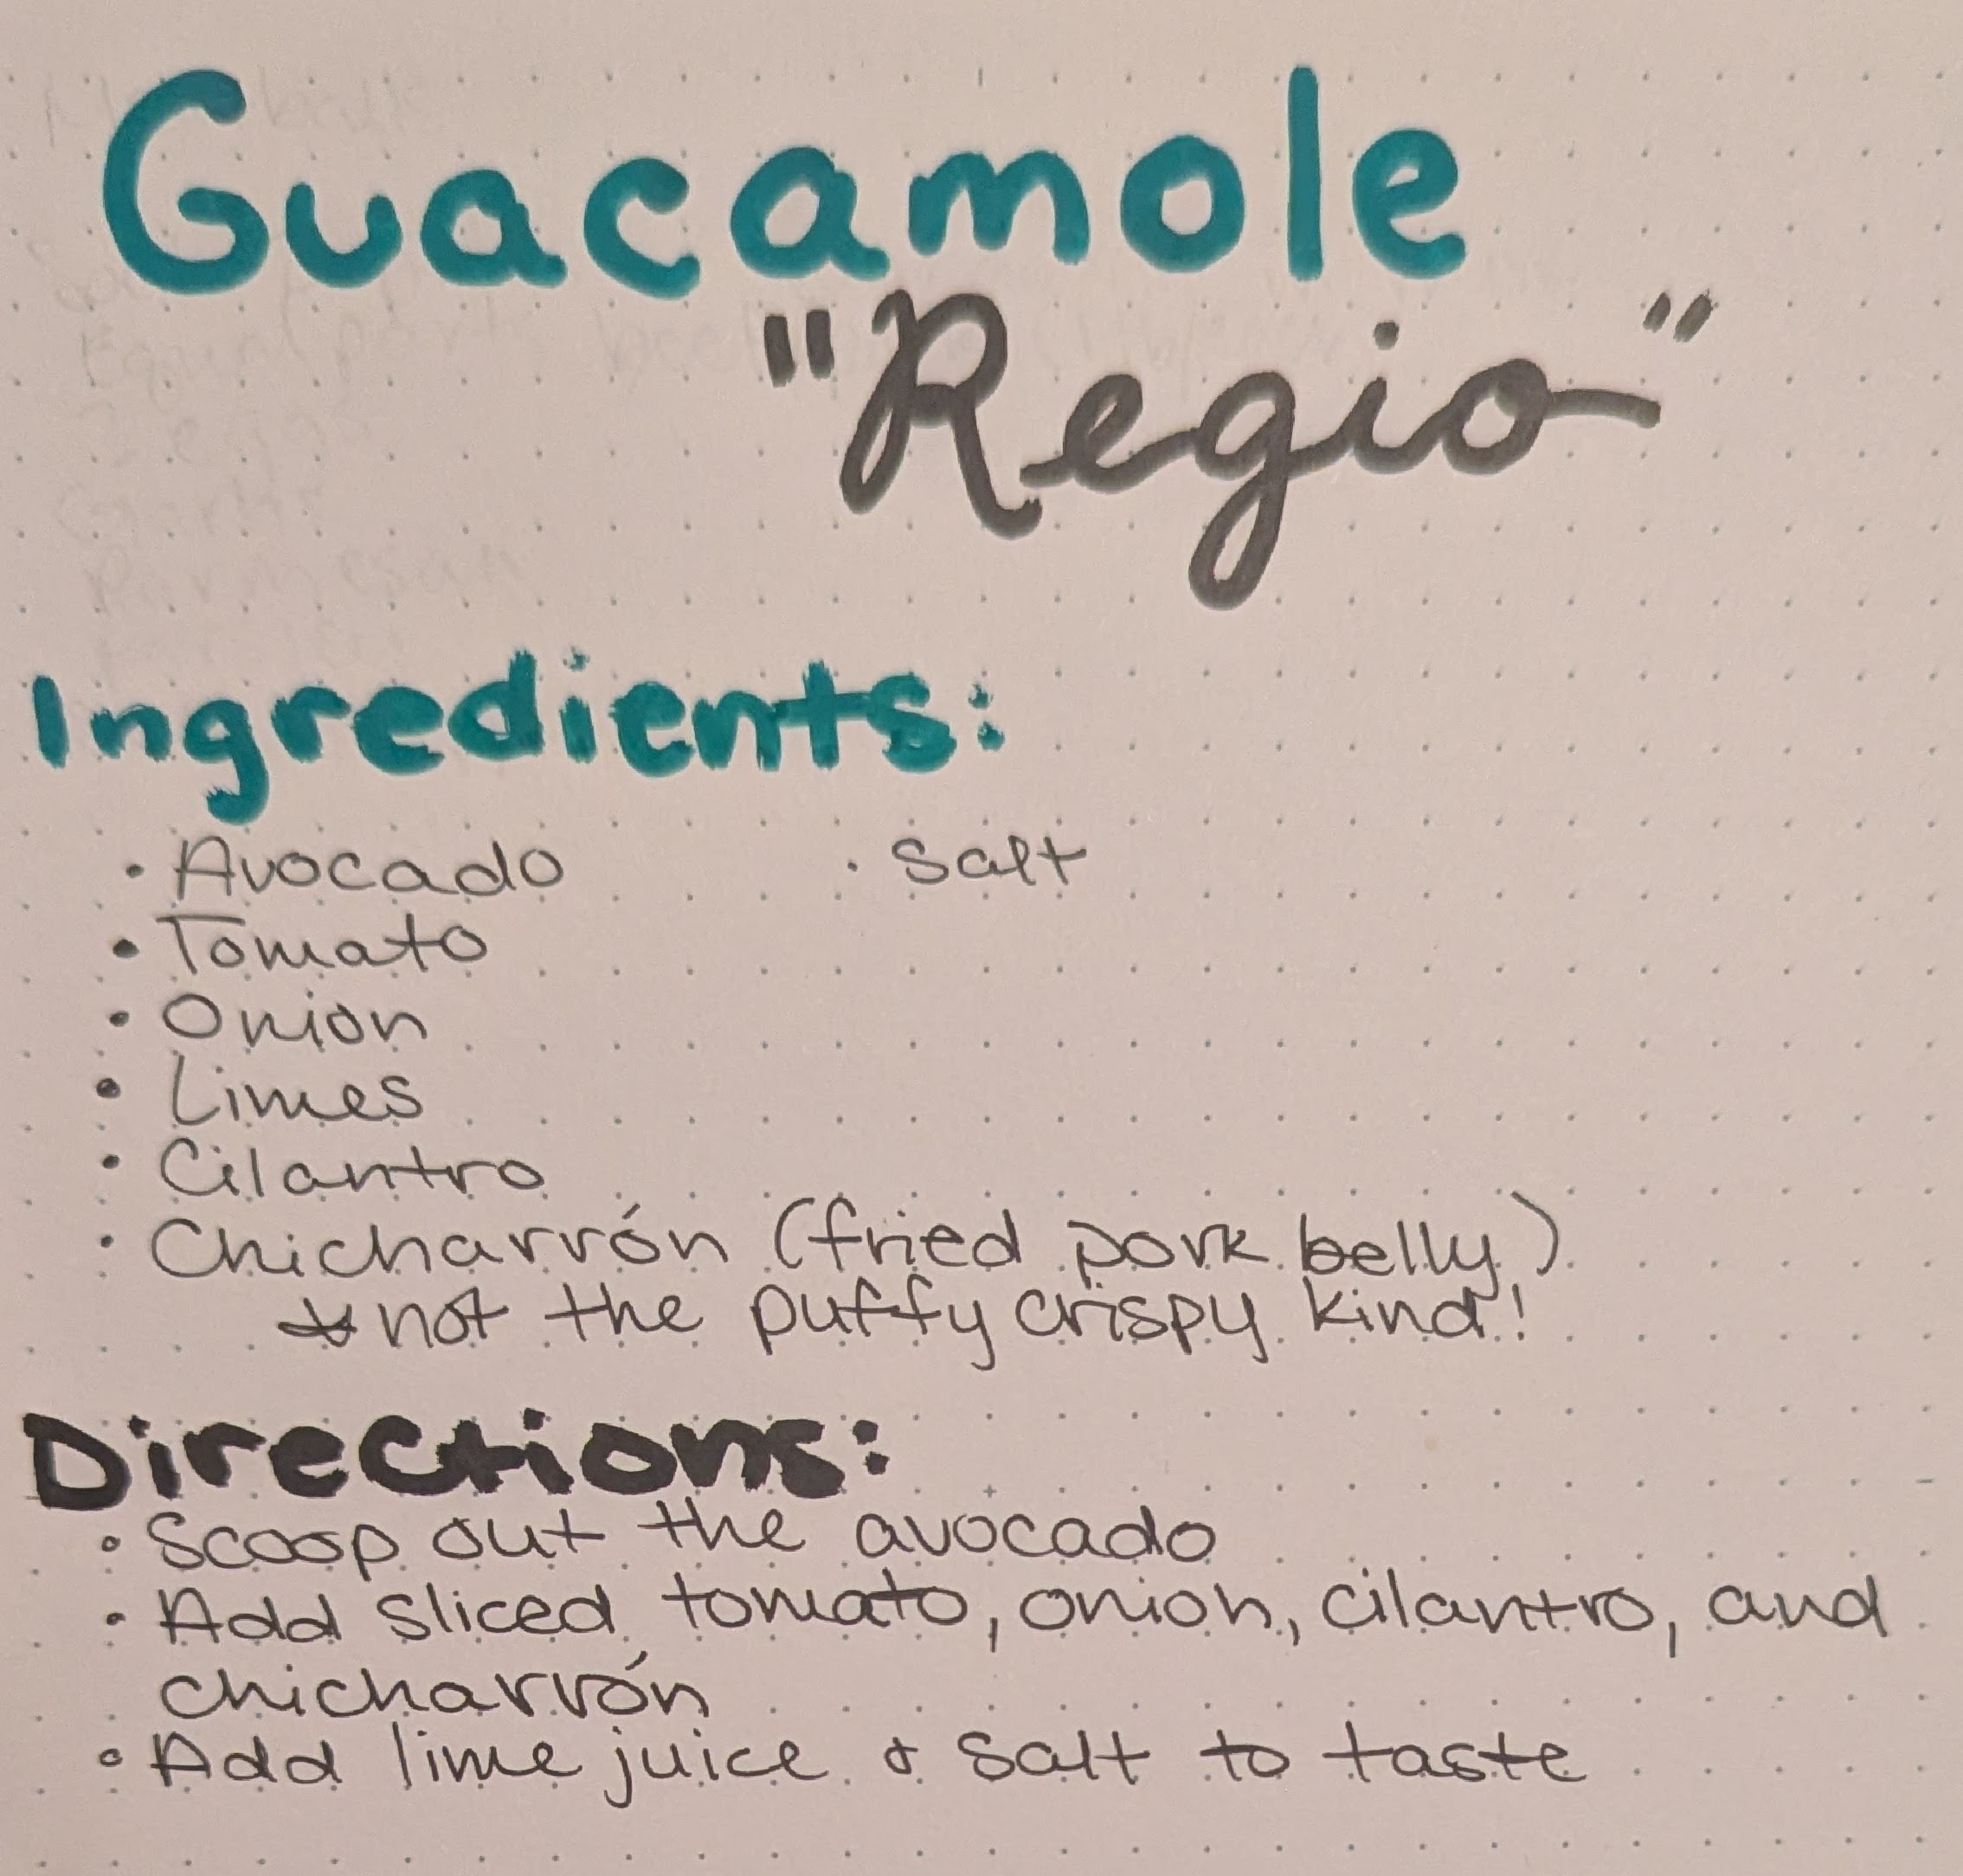 Guacamole
"Regio"
Ingredients:
· Avocado · Salt
• Tomato
• Onion
• Limes
• Cilantro
• Chicharrón (fried pork belly)
* not the puffy crispy kind!
Directions:
• Scoop out the avocado
• Add sliced tomato, onion, cilantro, and
chicharrón
• Add lime juice & salt to taste